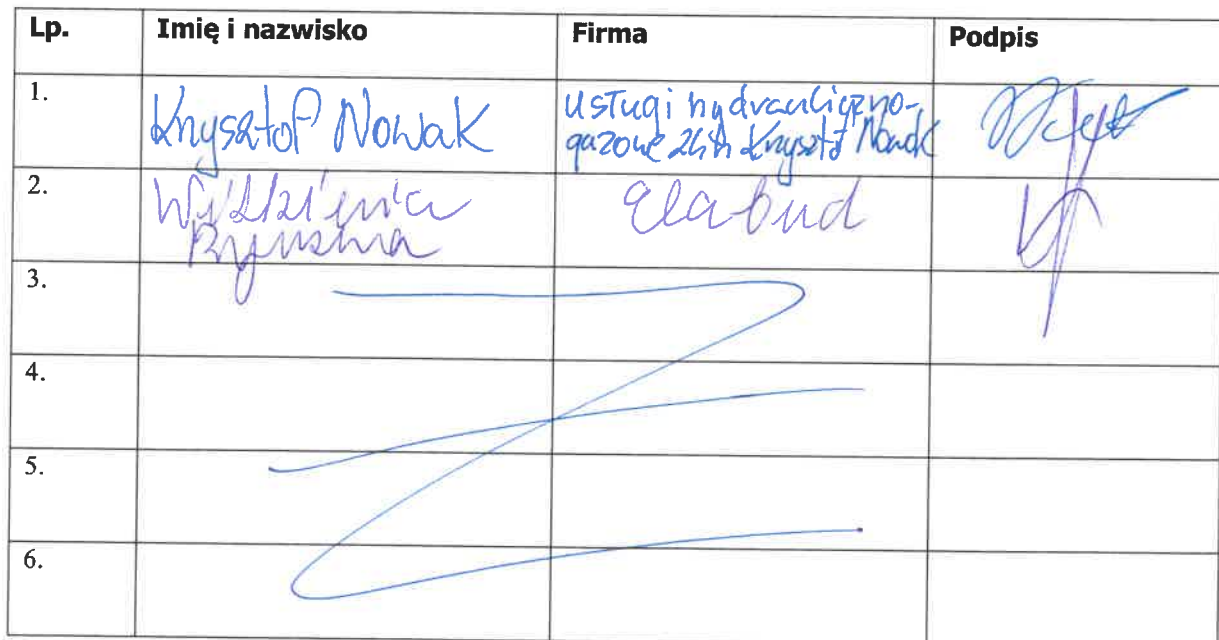 Lp. Imię i nazwisko Firma Podpis
1. Krzysztof Nowak usługi hydrauliczno-
gazowe 24h Krzysztof Nowak
2. Elabud
3.
4.
5.
6.